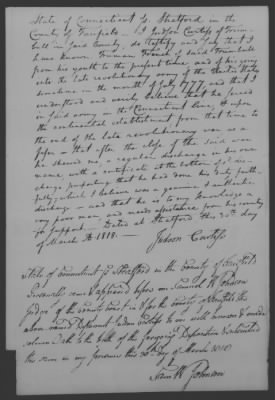 State of Connecticut Ss. Stratford in the
County of Fairfield I Judson Curtiss of Trum-
bull in said County, do testify and say that I
have known Truman French of said Trumbull
from his youth to the present time, and of his going
into the late revolutionary army of the United States
sometime in the month of July 1777 and that I
understood and verily believe that he served
in said army in the Connecticut line, & upon
the continental establishment from that time to
the end of the late revolutionary war as a
fifer - that after the close of the said war
he showed me, a regular discharge in his own
name with a certificate at the bottom of sd. dis-
charge purporting that he had done his duty faith-
fully, which I believe was a genuine & authentic
discharge - and that he is to my knowledge a
very poor man, and needs assistance from his country
for support - Dated at Stratford this 30th day
of March AD 1818 -
Judson Curtiss
State of Connecticut ss Stratford in the County of Fairfield
personally came & appeared before me Samuel W Johnson
Judge of the County Court in & for the County of Fairfield the
above named Deponent Judson Curtiss to me well known & made
solemn Oath to the truth of the foregoing Deposition & subscribed
the same in my presence this 30th day of March 1818
Sam W Johnson